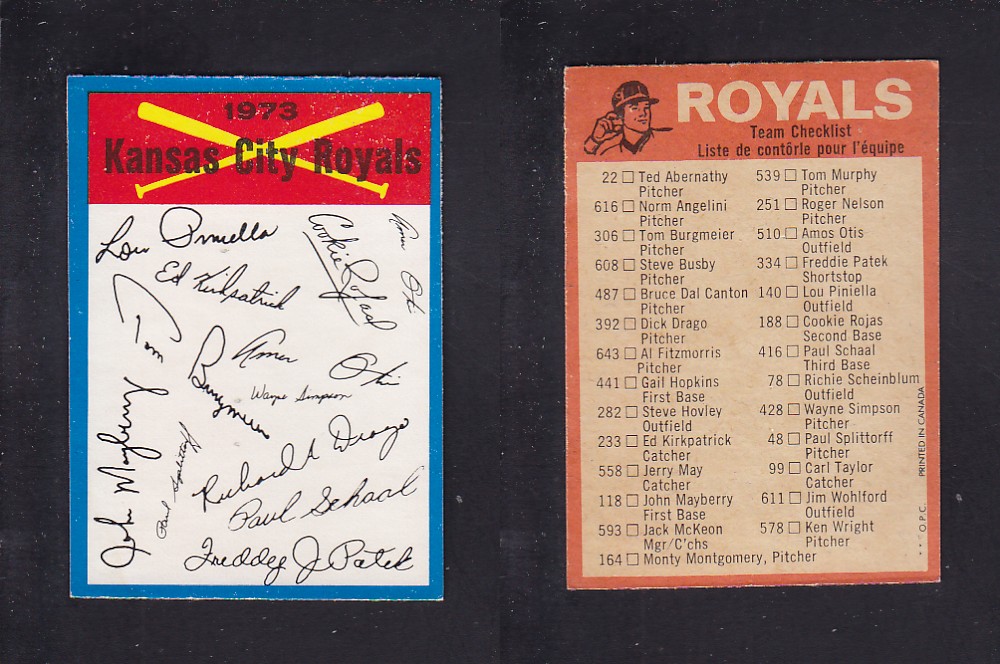 1973
Kansas City Royals
Lou Piniella
Cookie Rojas
Amos Otis
Ed Kirkpatrick
Tom Burgmeier
Amos Otis
Wayne Simpson
John Mayberry
Paul Splittorff
Richard A Drago
Paul Schaal
Freddey J Patek
ROYALS
Team Checklist
Liste de contôrle pour l'équipe
22 Ted Abernathy
Pitcher
616 Norm Angelini
Pitcher
306 Tom Burgmeier
Pitcher
608 Steve Busby
Pitcher
487 Bruce Dal Canton
Pitcher
392 Dick Drago
Pitcher
643 Al Fitzmorris
Pitcher
441 Gail Hopkins
First Base
282 Steve Hovley
Outfield
233 Ed Kirkpatrick
Catcher
558 Jerry May
Catcher
118 John Mayberry
First Base
593 Jack McKeon
Mgr/C'chs
164 Monty Montgomery, Pitcher
539 Tom Murphy
Pitcher
251 Roger Nelson
Pitcher
510 Amos Otis
Outfield
334 Freddie Patek
Shortstop
140 Lou Piniella
Outfield
188 Cookie Rojas
Second Base
416 Paul Schaal
Third Base
78 Richie Scheinblum
Outfield
428 Wayne Simpson
Pitcher
48 Paul Splittorff
Pitcher
99 Carl Taylor
Catcher
611 Jim Wohlford
Outfield
578 Ken Wright
Pitcher
*** O.P.C. PRINTED IN CANADA